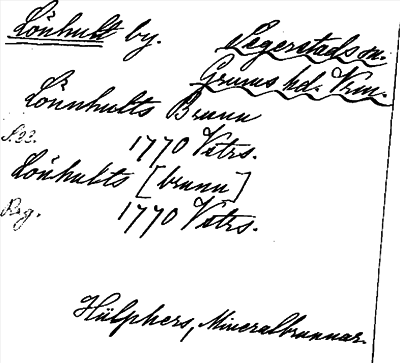 Lönhult by.
Segerstads sn.
Grums hd. Vrm.
Lönnhults Brunn
S. 22. 1770 Vetrs.
Lönhults [brunn]
Reg. 1770 Vetrs.
Hülphers, Mineralbrunnar.